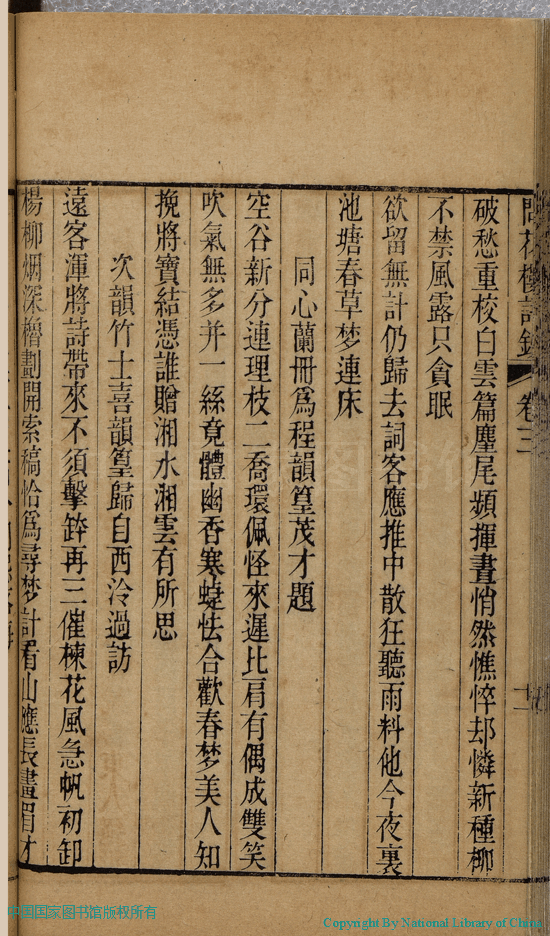 問花樓詩鈔 卷三
破愁重校白雲篇麈尾頻揮晝悄然憔悴却憐新種柳
不禁風露只貪眠
欲留無計仍歸去詞客應推中散狂聽雨料他今夜裏
池塘春草梦連床
同心蘭冊為程韻篁茂才題
空谷新分連理枝二喬環佩怪來遲比肩有偶成雙笑
吹氣無多并一絲竟體幽香寒蜨怯合歡春梦美人知
挽將寶結憑誰贈湘水湘雲有所思
次韻竹士喜韻篁歸自西泠過訪
遠客渾將詩帶來不須擊鉢再三催楝花風急帆初卸
楊柳烟深櫓劃開索稿恰為尋梦計看山應長畫眉才
中国国家图书馆版权所有
Copyright By National Library of China